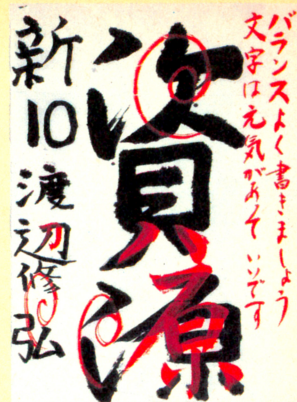 バランスよく書きましょう
文字は元気があていいです
資源
新10 渡辺修弘